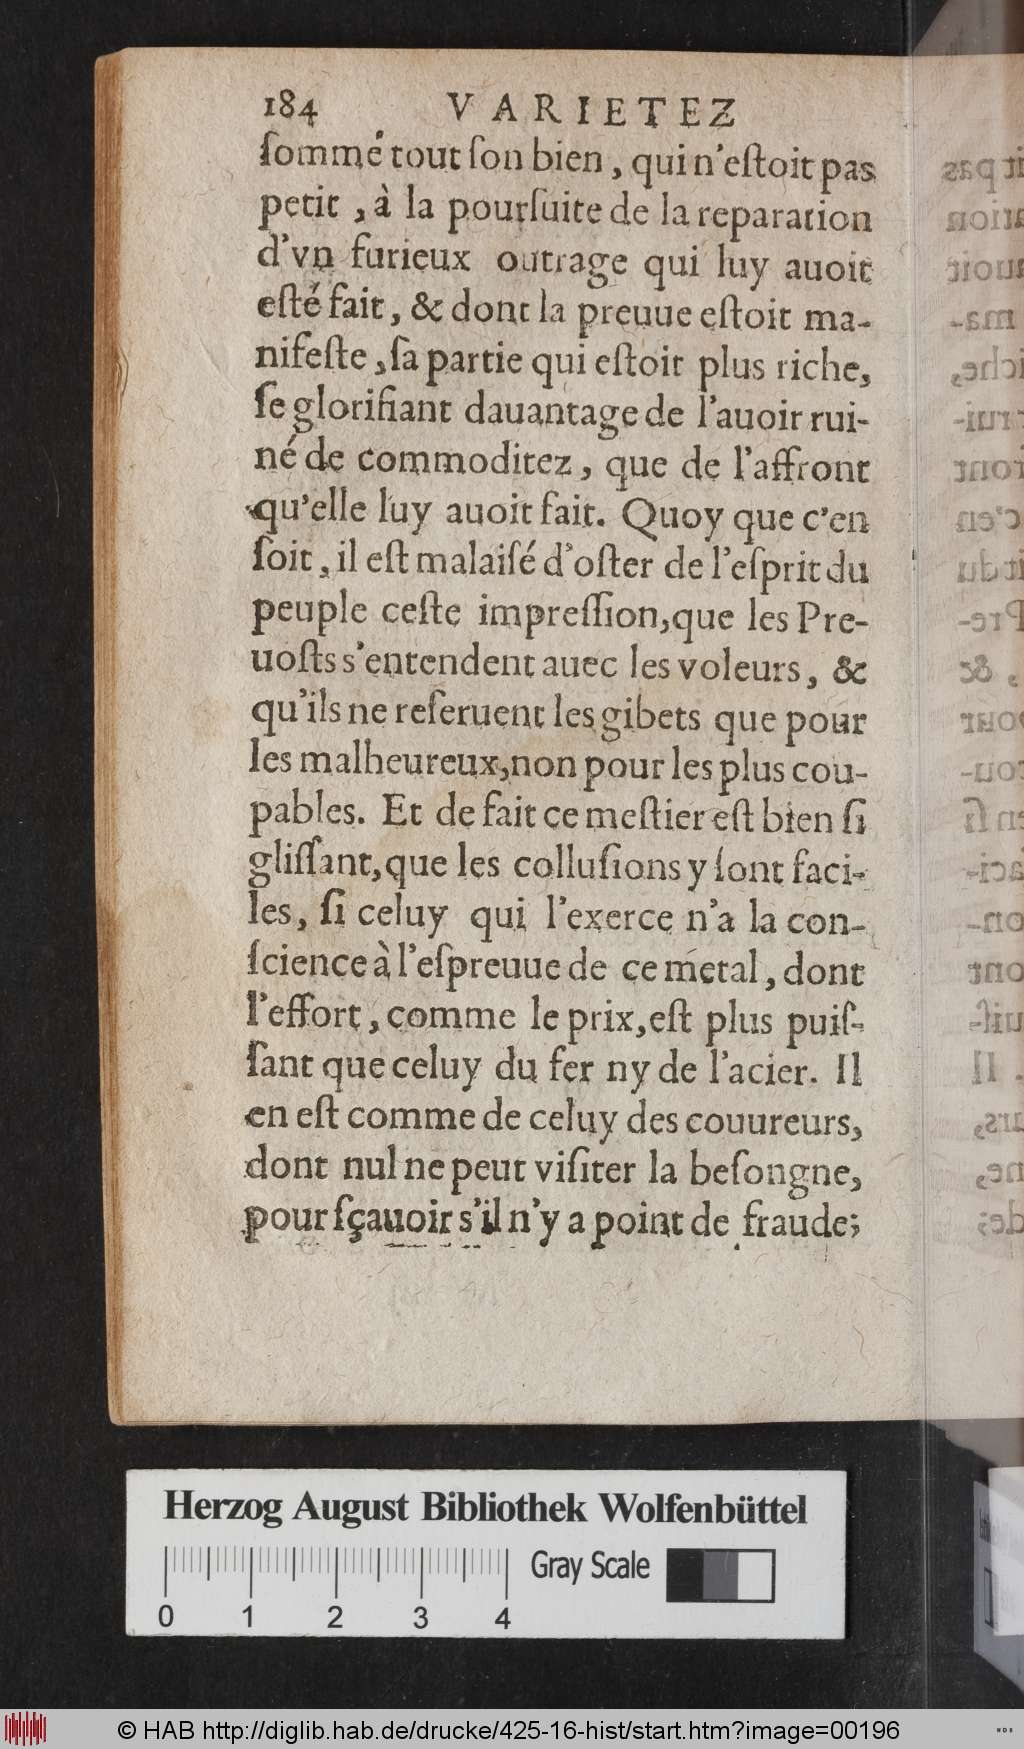 184 VARIETEZ
ſommé tout ſon bien, qui n'eſtoit pas
petit, à la pourſuite de la reparation
d'vn furieux outrage qui luy auoit
eſté fait, & dont la preuue eſtoit ma-
nifeſte, ſa partie qui eſtoit plus riche,
ſe glorifiant dauantage de l'auoir rui-
né de commoditez, que de l'affront
qu'elle luy auoit fait. Quoy que c'en
ſoit, il eſt malaiſé d'oſter de l'eſprit du
peuple ceſte impreſſion, que les Pre-
uoſts s'entendent auec les voleurs, &
qu'ils ne reſeruent les gibets que pour
les malheureux, non pour les plus cou-
pables. Et de fait ce meſtier eſt bien ſi
gliſſant, que les colluſions y ſont faci-
les, ſi celuy qui l'exerce n'a la con-
ſcience à l'eſpreuue de ce metal, dont
l'effort, comme le prix, eſt plus puiſ-
ſant que celuy du fer ny de l'acier. Il
en eſt comme de celuy des couureurs,
dont nul ne peut viſiter la beſongne,
pour ſçauoir s'il n'y a point de fraude;
Herzog August Bibliothek Wolfenbüttel
Gray Scale
0 1 2 3 4
© HAB http://diglib.hab.de/drucke/425-16-hist/start.htm?image=00196